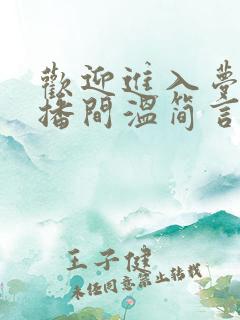 歡迎進入夢
播間溫简言
王子健
未经同意禁止转载